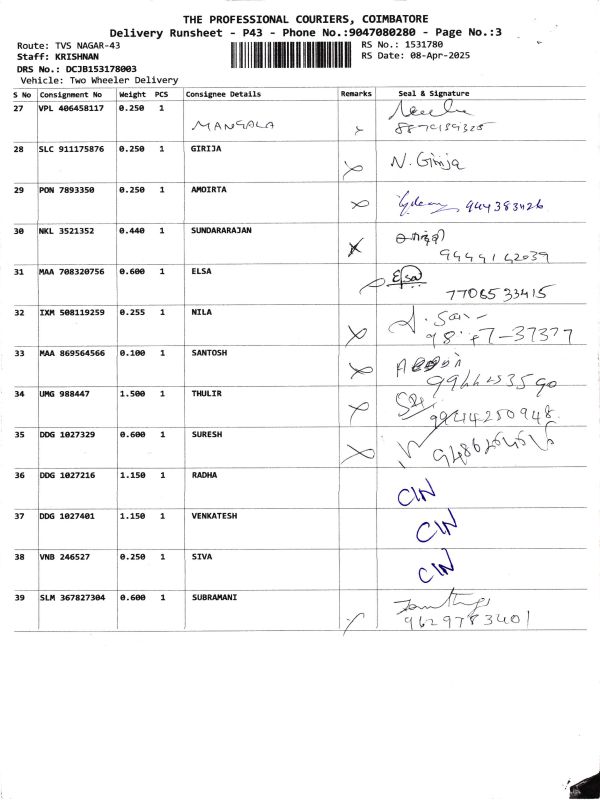 THE PROFESSIONAL COURIERS, COIMBATORE
Delivery Runsheet - P43 - Phone No.:9047080280 - Page No.:3
Route: TVS NAGAR-43 RS No.: 1531780
Staff: KRISHNAN RS Date: 08-Apr-2025
DRS No.: DCJB153178003
Vehicle: Two Wheeler Delivery
S No Consignment No Weight PCS Consignee Details Remarks Seal & Signature
27 VPL 406458117 0.250 1 MANGALA
28 SLC 911175876 0.250 1 GIRIJA N. Girija
29 PON 7893350 0.250 1 AMOIRTA 9443383426
30 NKL 3521352 0.440 1 SUNDARARAJAN
9444142039
31 MAA 708320756 0.600 1 ELSA Elsa
7706533415
32 IXM 508119259 0.255 1 NILA
33 MAA 869564566 0.100 1 SANTOSH
34 UMG 988447 1.500 1 THULIR
9944250948
35 DDG 1027329 0.600 1 SURESH
36 DDG 1027216 1.150 1 RADHA CIN
37 DDG 1027401 1.150 1 VENKATESH CIN
38 VNB 246527 0.250 1 SIVA CIN
39 SLM 367827304 0.600 1 SUBRAMANI
9629783401